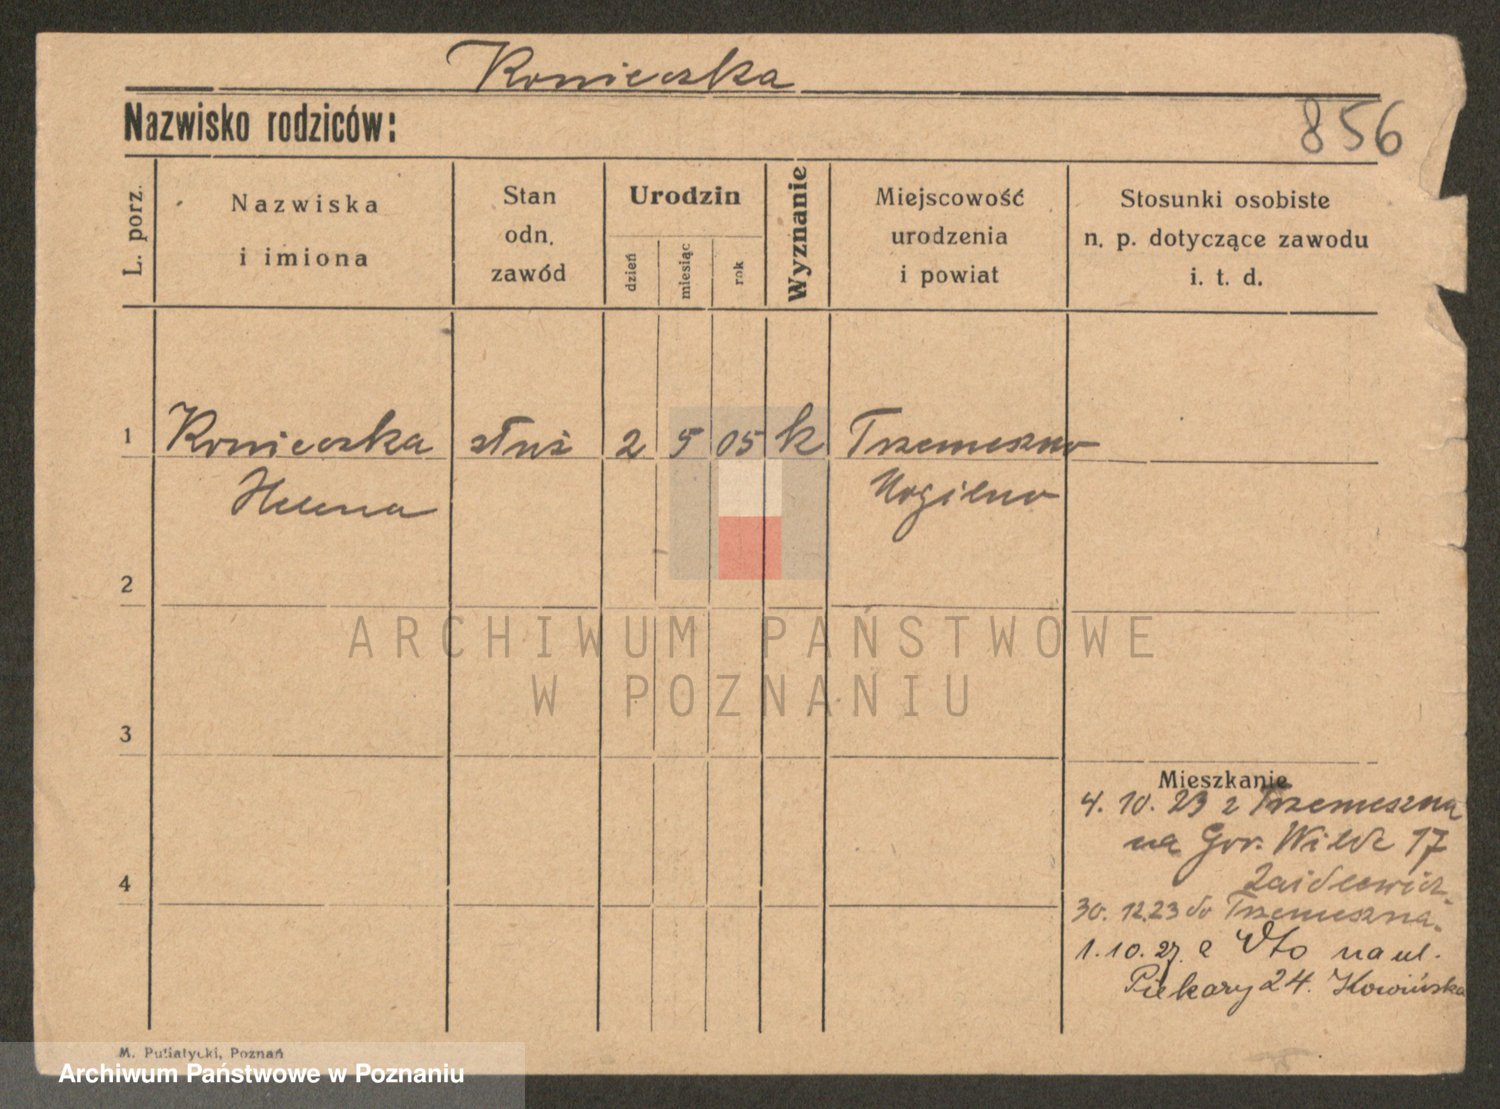 Konieczka
Nazwisko rodziców:
856
L. porz.
Nazwiska
i imiona
Stan
odn.
zawód
Urodzin
dzień
miesiąc
rok
Wyznanie
Miejscowość
urodzenia
i powiat
Stosunki osobiste
n. p. dotyczące zawodu
i. t. d.
1 Konieczka służ 2 5 05 k Trzemeszno
Helena Mogilno
2
ARCHIWUM PAŃSTWOWE
W POZNANIU
3
Mieszkanie
4. 10. 23 z Trzemeszna
na Gór. Wilda 17
4
30. 12.23 do Trzemeszna.
1. 10. 27. na ul.
Piekary 24.
M. Putiatycki, Poznań
Archiwum Państwowe w Poznaniu